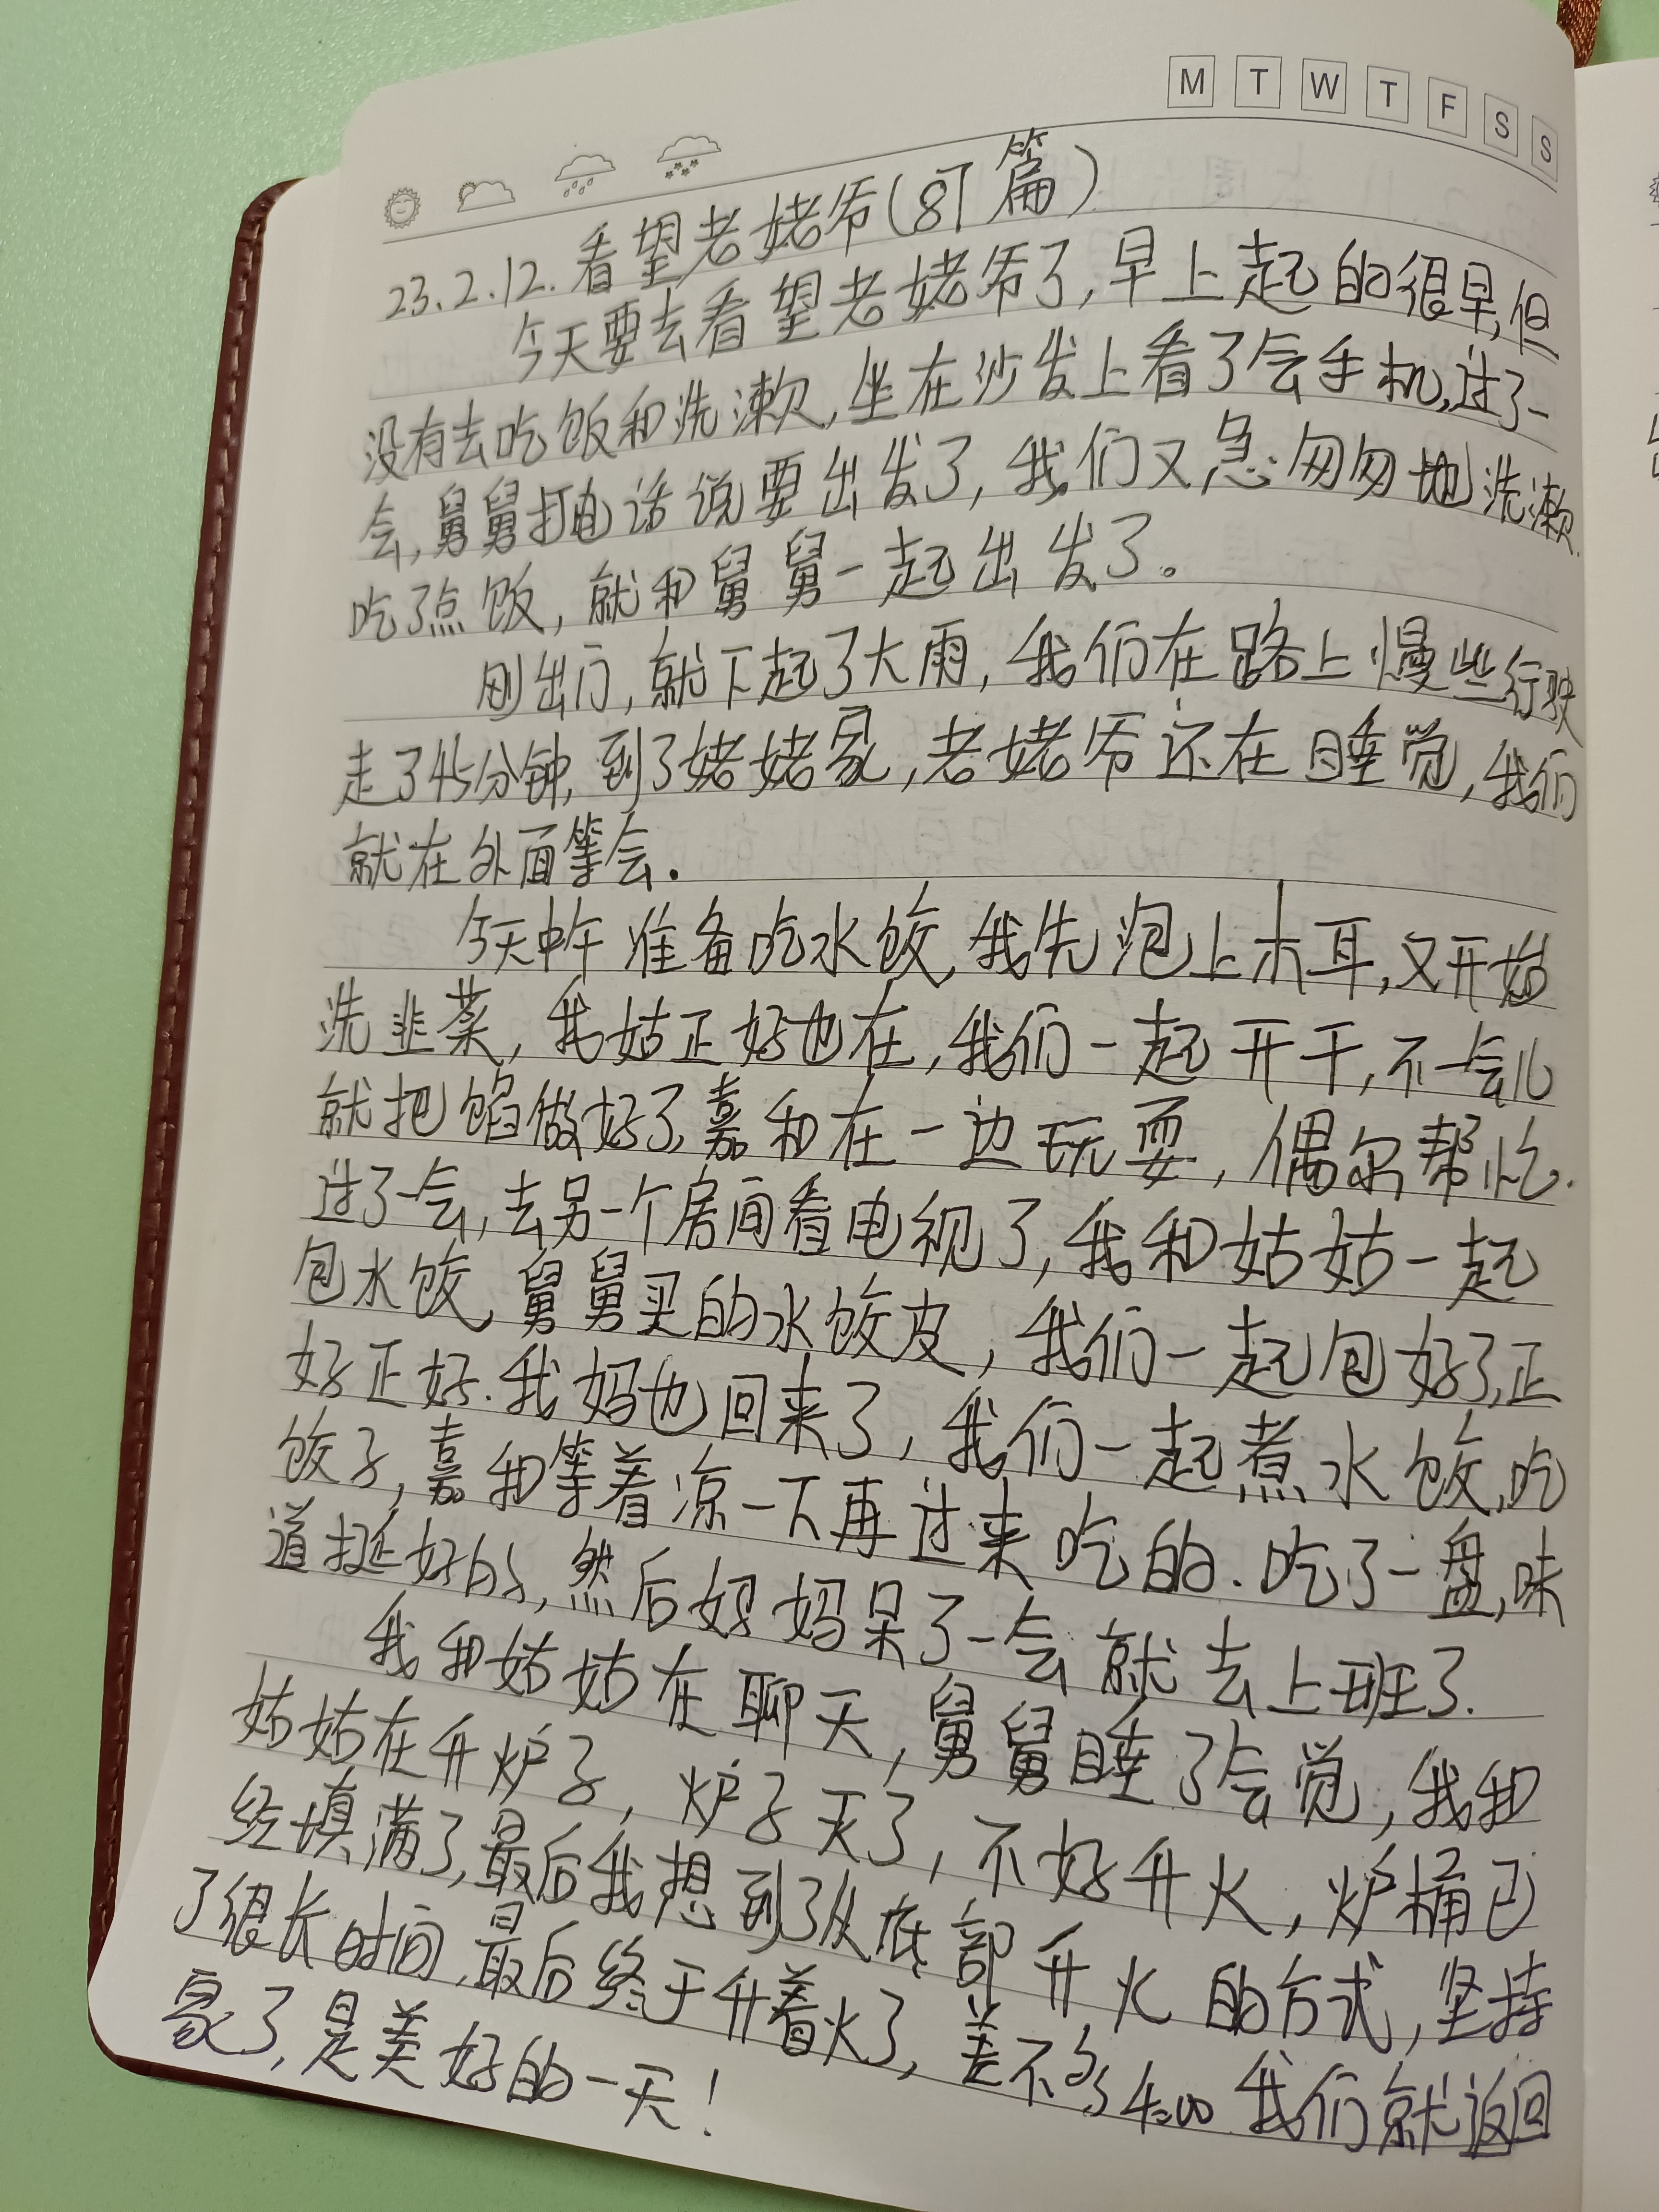 M T W T F S S
23.2.12. 看望老姥爷(87篇)
今天要去看望老姥爷了,早上起的很早,但
没有去吃饭和洗漱,坐在沙发上看了会手机,过了一
会,舅舅打电话说要出发了,我们又急匆匆地洗漱,
吃了点饭,就和舅舅一起出发了。
刚出门,就下起了大雨,我们在路上慢些行驶
走了45分钟,到了姥姥家,老姥爷还在睡觉,我们
就在外面等会.
今天中午准备吃水饺,我先泡上木耳,又开始
洗韭菜,我姑正好也在,我们一起开干,不一会儿
就把馅做好了,嘉和在一边玩耍,偶尔帮忙.
过了一会,去另一个房间看电视了,我和姑姑一起
包水饺,舅舅买的水饺皮,我们一起包好了,正
好正好.我妈也回来了,我们一起煮水饺,吃
饺子,嘉和等着凉一下再过来吃的.吃了一盘,味
道挺好的,然后妈妈呆了一会就去上班了.
我和姑姑在聊天,舅舅睡了会觉,我和
姑姑在升炉子,炉子灭了,不好升火,炉桶已
经填满了,最后我想到了从底部升火的方式,坚持
了很长时间,最后终于升着火了,差不多4:00我们就返回
家了,是美好的一天!